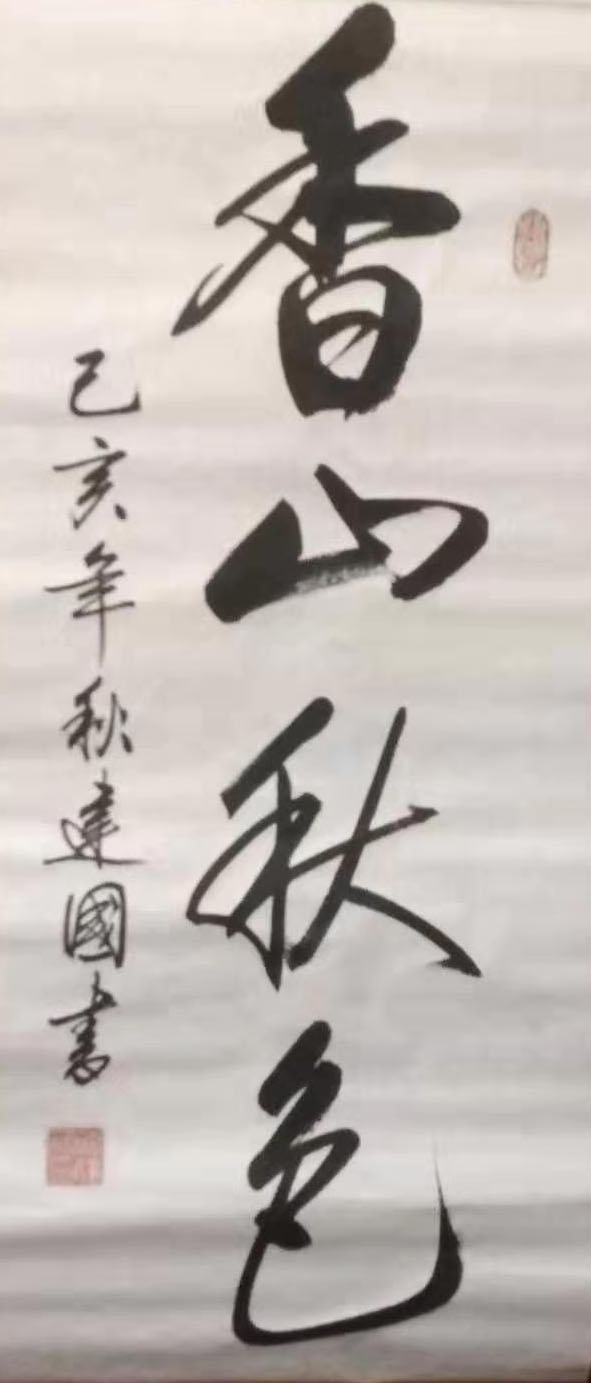 香山秋色
己亥年秋建國書